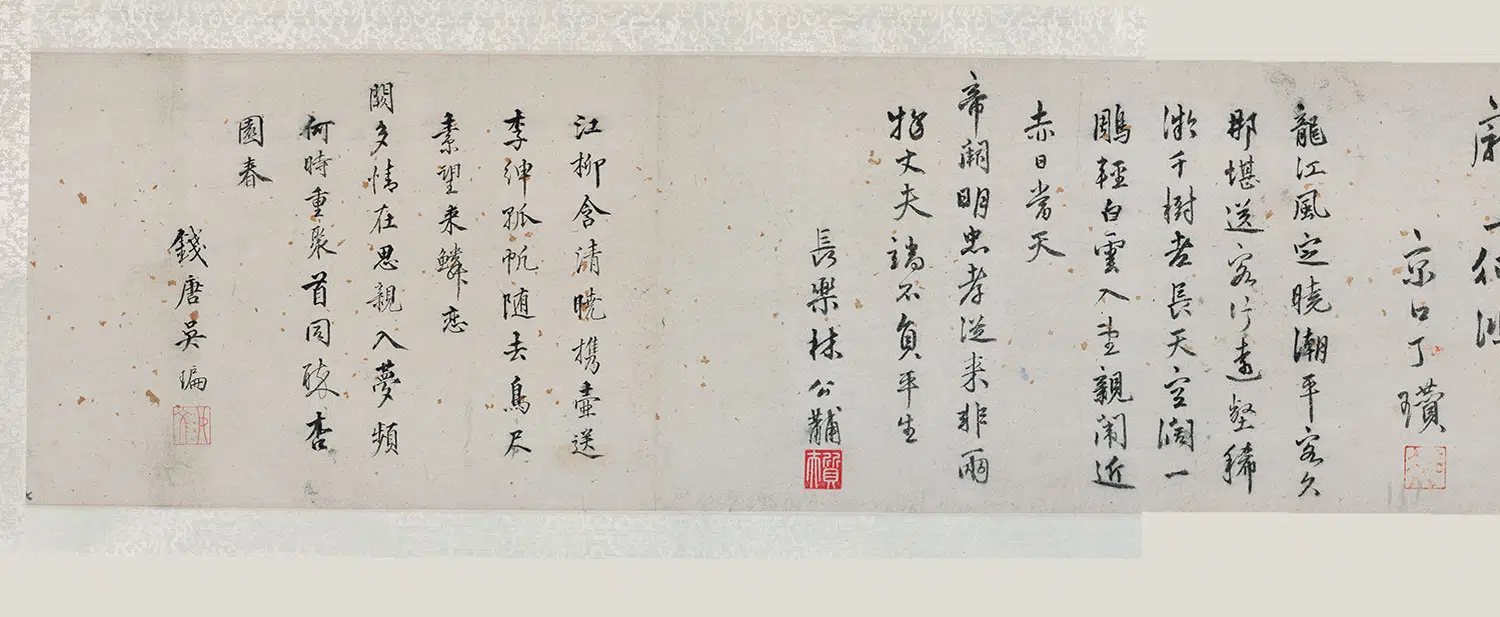 京口丁瓚
龍江風定曉潮平客久
那堪送客行遠壑稀
微千樹杳長天空闊一
鵰輕白雲入望親闈近
赤日當天
帝闕明忠孝從來非兩
㸵丈夫端不負平生
長樂林公黼
江柳含清曉攜壺送
李紳孤帆随去鳥尺
素望来鱗恋
闕多情在思親入夢頻
何時重聚首同醉杏
園春
錢唐吳瑞